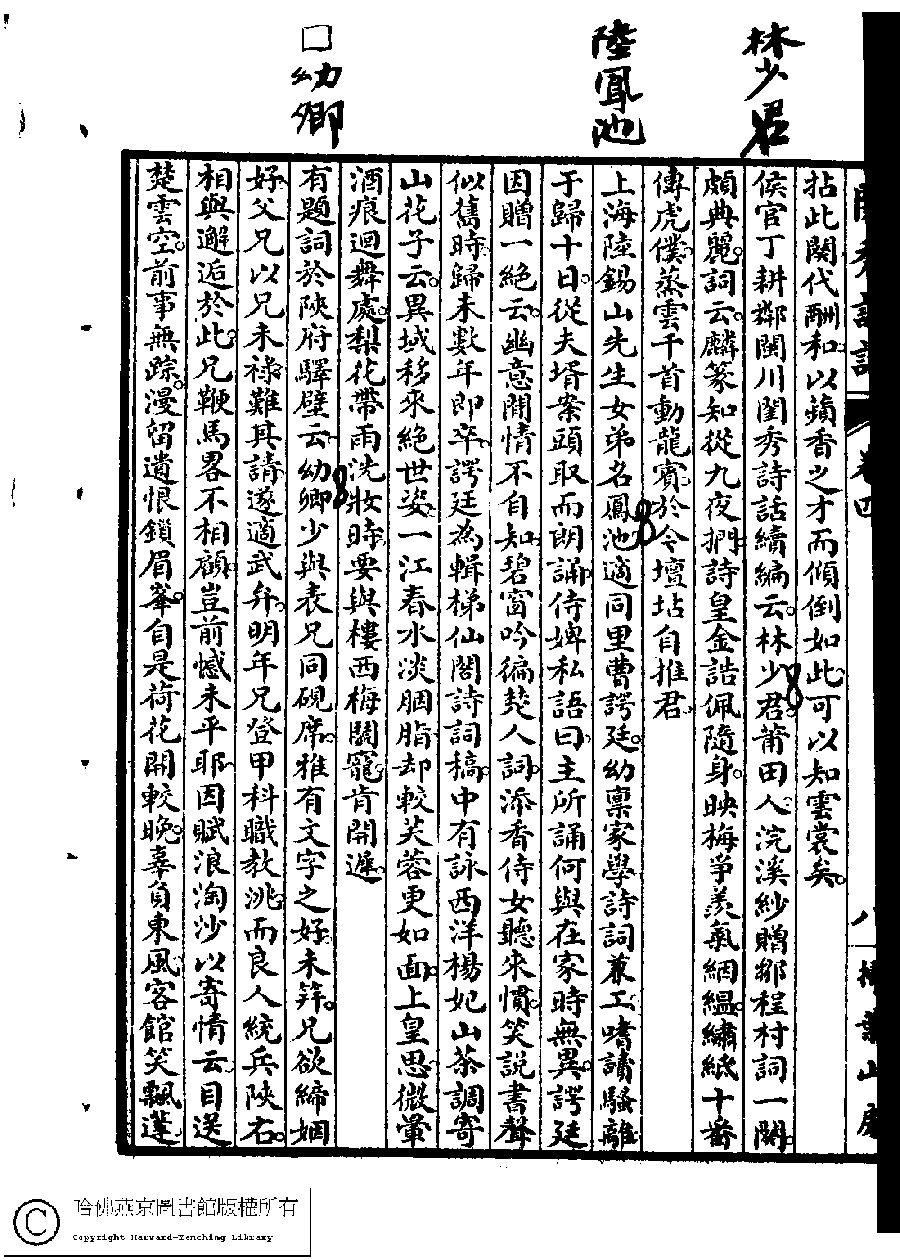 林少君
陸鳳池
□幼卿
拈此闋代酬和以蘋香之才而傾倒如此可以知雲裳矣
侯官丁耕鄰閩川閨秀詩話續編云林少君莆田人浣溪紗贈鄒程村詞一闋
頗典麗詞云麟篆知從九夜捫詩皇金誥佩隨身映梅爭羨氣絪縕繡紙十番
傳虎僕蒸雲千首動龍賓於今壇坫自推君
上海陸錫山先生女弟名鳳池適同里曹諤廷幼稟家學詩詞兼工嗜讀騷離
于歸十日從夫壻案頭取而朗誦侍婢私語曰主所誦何與在家時無異諤廷
因贈一絕云幽意閒情不自知碧窗吟徧楚人詞添香侍女聽來慣笑說書聲
似舊時歸未數年即卒諤廷為輯梯仙閣詩詞稿中有詠西洋楊妃山茶調寄
山花子云異域移來絕世姿一江春水淡胭脂却較芙蓉更如面上皇思微暈
酒痕迴舞處梨花帶雨洗妝時要與樓西梅鬬寵肯開遲
有題詞於陝府驛壁云幼卿少與表兄同硯席雅有文字之好未笄兄欲締姻
好父兄以兄未祿難其請遂適武弁明年兄登甲科職教洮而良人統兵陝右
相與邂逅於此兄鞭馬畧不相顧豈前憾未平耶因賦浪淘沙以寄情云目送
楚雲空前事無踪漫留遺恨鎖眉峯自是荷花開較晚辜負東風客館笑飄蓬
哈佛燕京圖書館版權所有
Copyright Harvard-Yenching Library